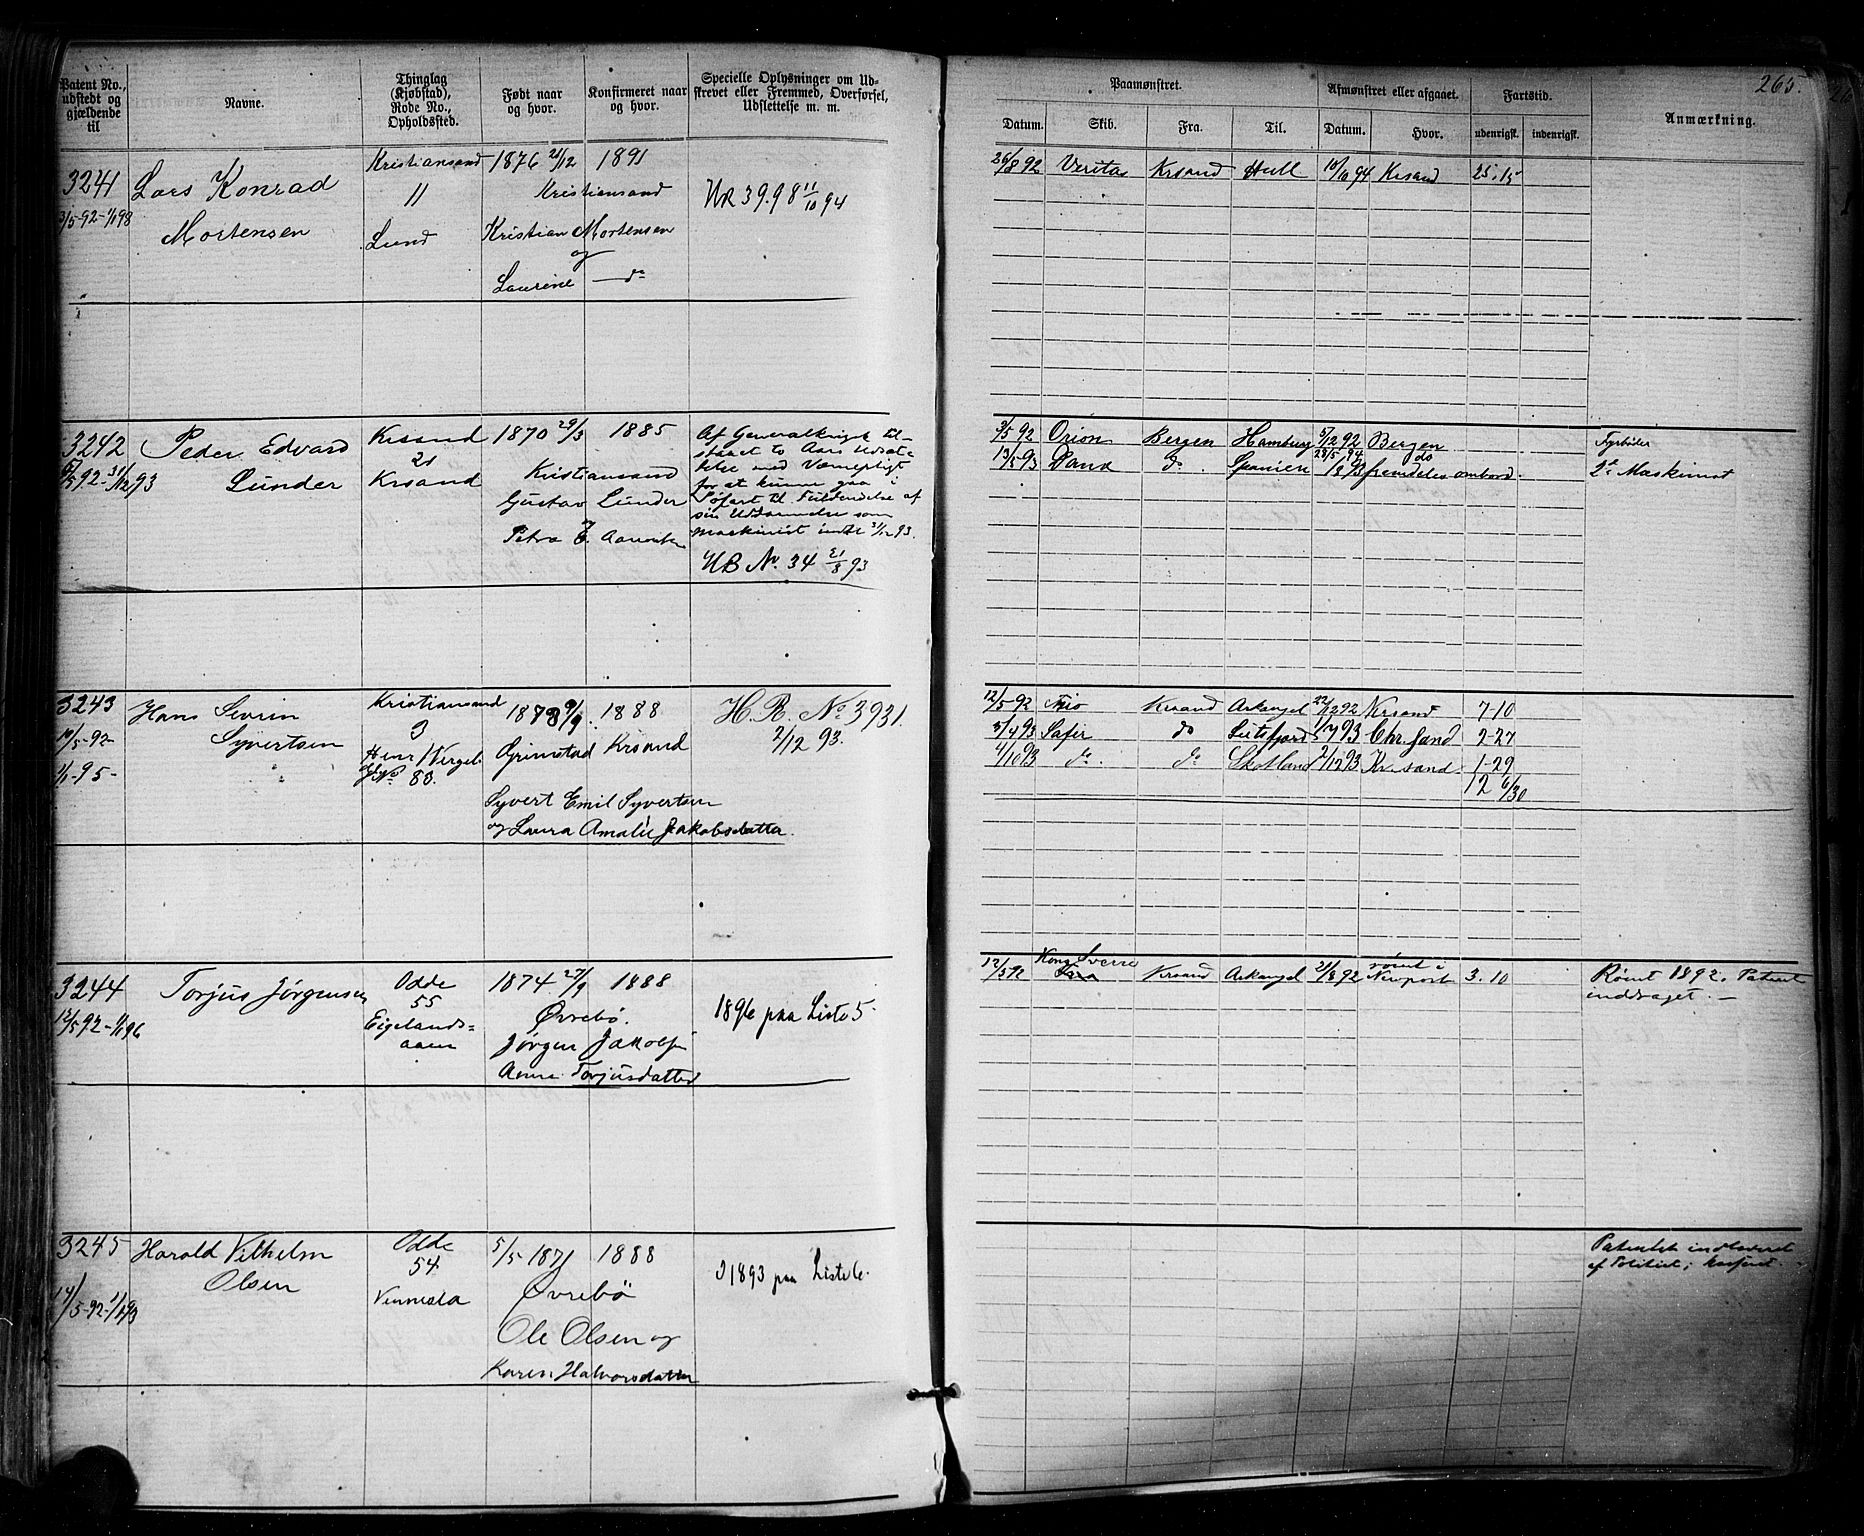 265.
Patent No., udstedt og gjældende til
Navne.
Thinglag (Kjøbstad), Rode No., Opholdssted.
Født naar og hvor.
Konfirmeret naar og hvor.
Specielle Oplysninger om Udskrevet eller Fremmed, Overførsel, Udslettelse m. m.
Paamønstret.
Afmønstret eller afgaaet.
Fartstid.
Anmærkning.
Datum. Skib. Fra. Til. Datum. Hvor. udenrigsk. indenrigsk.
3241
3/5-92-1/1 98
Lars Konrad
Mortensen
Kristiansand
11
Lund
1876 21/12 1891
Kristiansand
Kristian Mortensen
og
Laurine — do
UR 39.98 11/10 94
26/8 92 Veritas Krsand Hull 10/10 94 Krsand 25.15
3242
6/5 92-31/12 93
Peder Edvard
Lunder
Krsand
21
Krsand
1870 29/3 1885
Kristiansand
Gustav Lunder
Petra E.
Af Generalkrigsk til-
staaet to Aars Udsæt-
telse med Værnepligt
for at kunne gaa i
Søfart til Fuldendelse af
sin Uddannelse som
Maskinist indtil 31/12 93.
UB No. 34 21/8 93
3/5 92 Orion Bergen Hamburg 5/12 92 Bergen Fyrbøder
13/5 93 Dana do Spanien 1/8 93 fremdeles ombord. 2de Maskinist
28/5 94 do
3243
10/5-92-
1/1-95-
Hans Sevrin
Syvertsen
Kristiansand
3
Henr. Wergel.
No 83.
1873 9/9. 1888
Grimstad Krsand
Syvert Emil Syvertsen
og Laura Amalie Jakobsdatter.
H. R. No 3931.
2/12 93.
12/5-92 Trio Krsand Arkangel 22/12 92 Krsand 7-10
5/4 93 Safir do 1/7 93 Chr.sand 2-27
4/10 93 do. do Skotland 2/12 93 Kr.sand 1-29
12 6/30
3244
12/5 92-1/1 96
Torjus Jørgensen
Odde
55
Eigelands=
aaen
1874 27/9 1888
Øvrebø.
Jørgen Jakobsen
Anne Torjusdatter
1896 paa Liste 5.
12/5 92 Kong Sverre Krsand Arkangel 21/8 92 rømt i Newport 3.10
Rømt 1892. Patent
inddraget. —
3245
14/5-92-1/1 93
Harald Vilhelm
Olsen
Odde
54
Vennesla
5/5 1871 1888
Øvrebø
Ole Olsen og
Karen Halvorsdatter
I 1893 paa Liste 6.
Patentet indleveret
af Politiet;